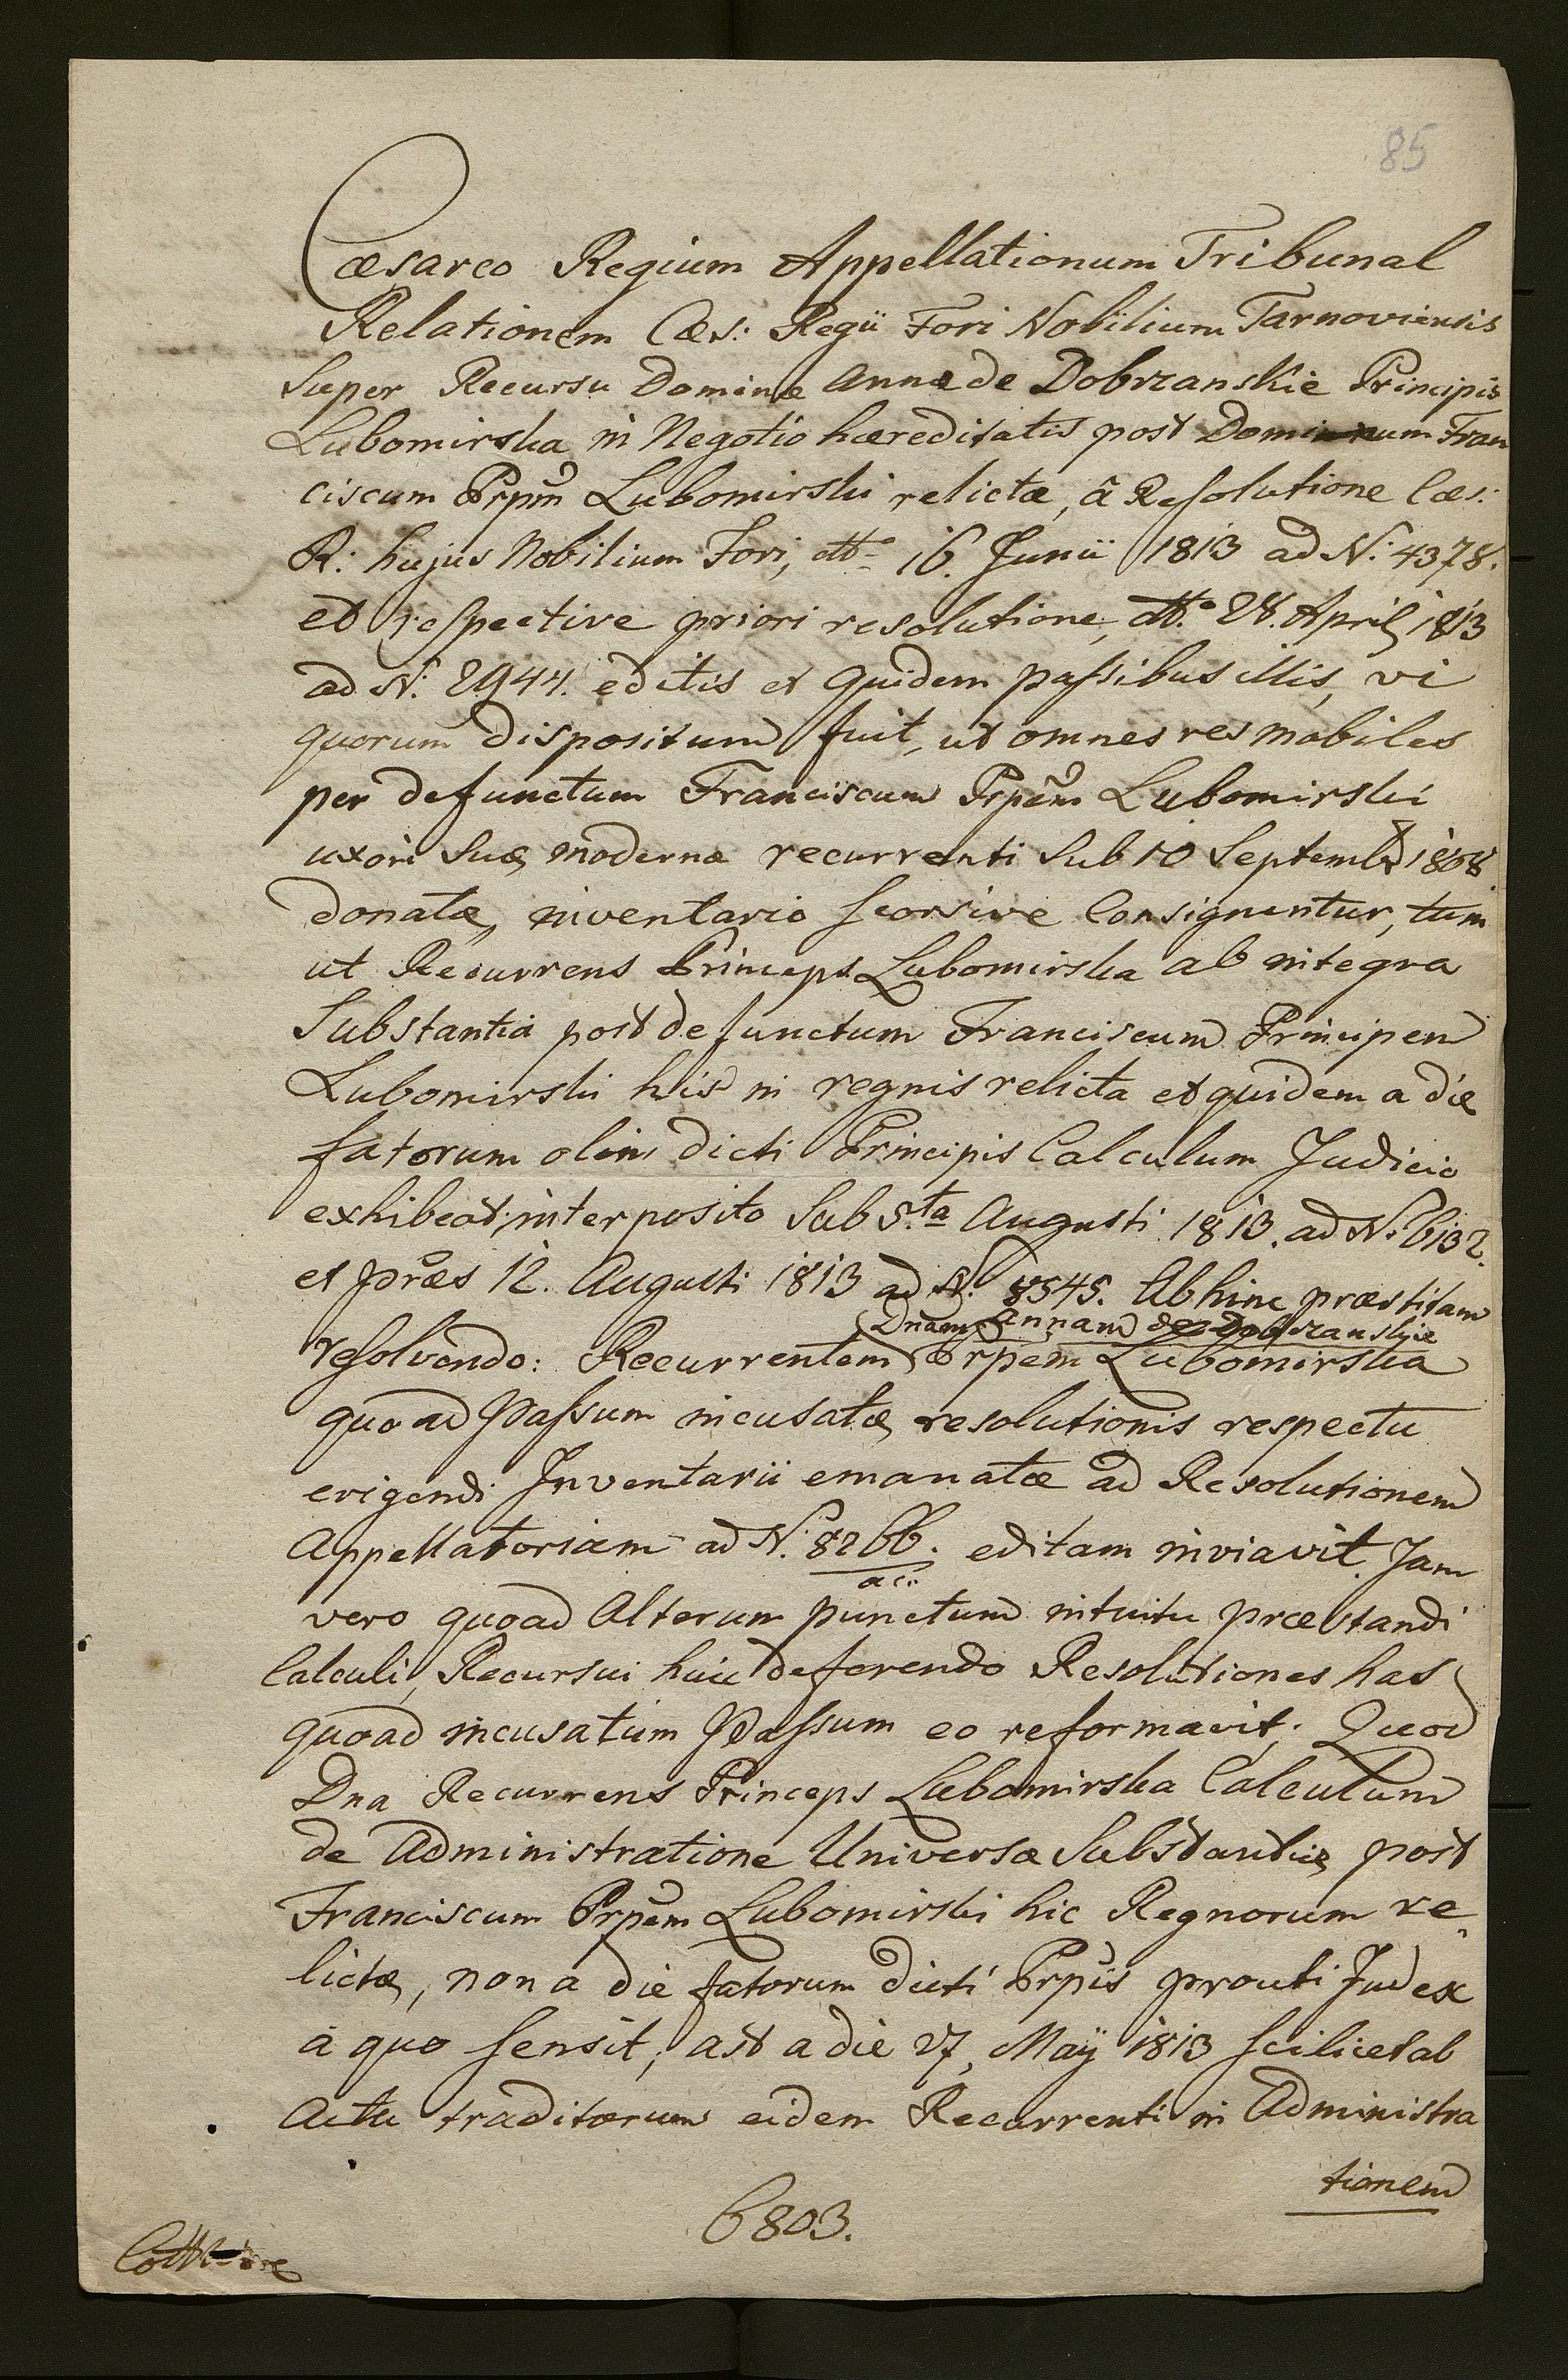 85
Cæsareo Regium Appellationum Tribunal
Relationem Cæs: Regii Fori Nobilium Tarnoviensis
Super Recursu Dominæ Annæ de Dobrzanskie Principis
Lubomirska in Negotio hæreditatis post Dominum Fran
ciscum Prpm Lubomirski relictæ, à Resolutione Cæs:
R: hujus Nobilium Fori, dtto 16. Junii 1813 ad N: 4378.
et respective priori resolutione, dtto 28. April 1813
ad N: 2944. editis et quidem passibus illis, vi
quorum dispositum fuit, ut omnes res mobiles
per defunctum Franciscum Prpem Lubomirski
uxori suæ modernæ recurrenti Sub 10 Septembr 1808
donatæ, inventario seorsive Consignentur, tum
ut Recurrens Princeps Lubomirska ab integra
Substantia post defunctum Franciscum Principem
Lubomirski his in regnis relicta et quidem a die
fatorum olim dicti Principis Calculum Judicio
exhibeat; interposito Sub 5.ta Augusti 1813. ad N: 6132.
et præs 12. Augusti 1813 ad N: 8545. Abhinc præstitam
Dnam Annam de Dobrzanskie
resolvendo: Recurrentem Prpem Lubomirska
quoad Passum incusatæ resolutionis respectu
erigendi Inventarii emanatæ ad Resolutionem
Appellatoriam ad N: 8266. editam inviavit. Jam
a c.
vero quoad Alterum punctum intuitu præstandi
Calculi, Recursui huic deferendo Resolutiones has
quoad incusatum Passum eo reformavit; Quod
Dna Recurrens Princeps Lubomirska Calculum
de Administratione Universæ Substantiæ post
Franciscum Prpem Lubomirski hic Regnorum re
lictæ, non a die fatorum dicti Prpis prouti Judex
à quo sensit, ast a die 27, Maÿ 1813 scilicet ab
Actu traditorum eidem Recurrenti in Administra
tionem
6803.